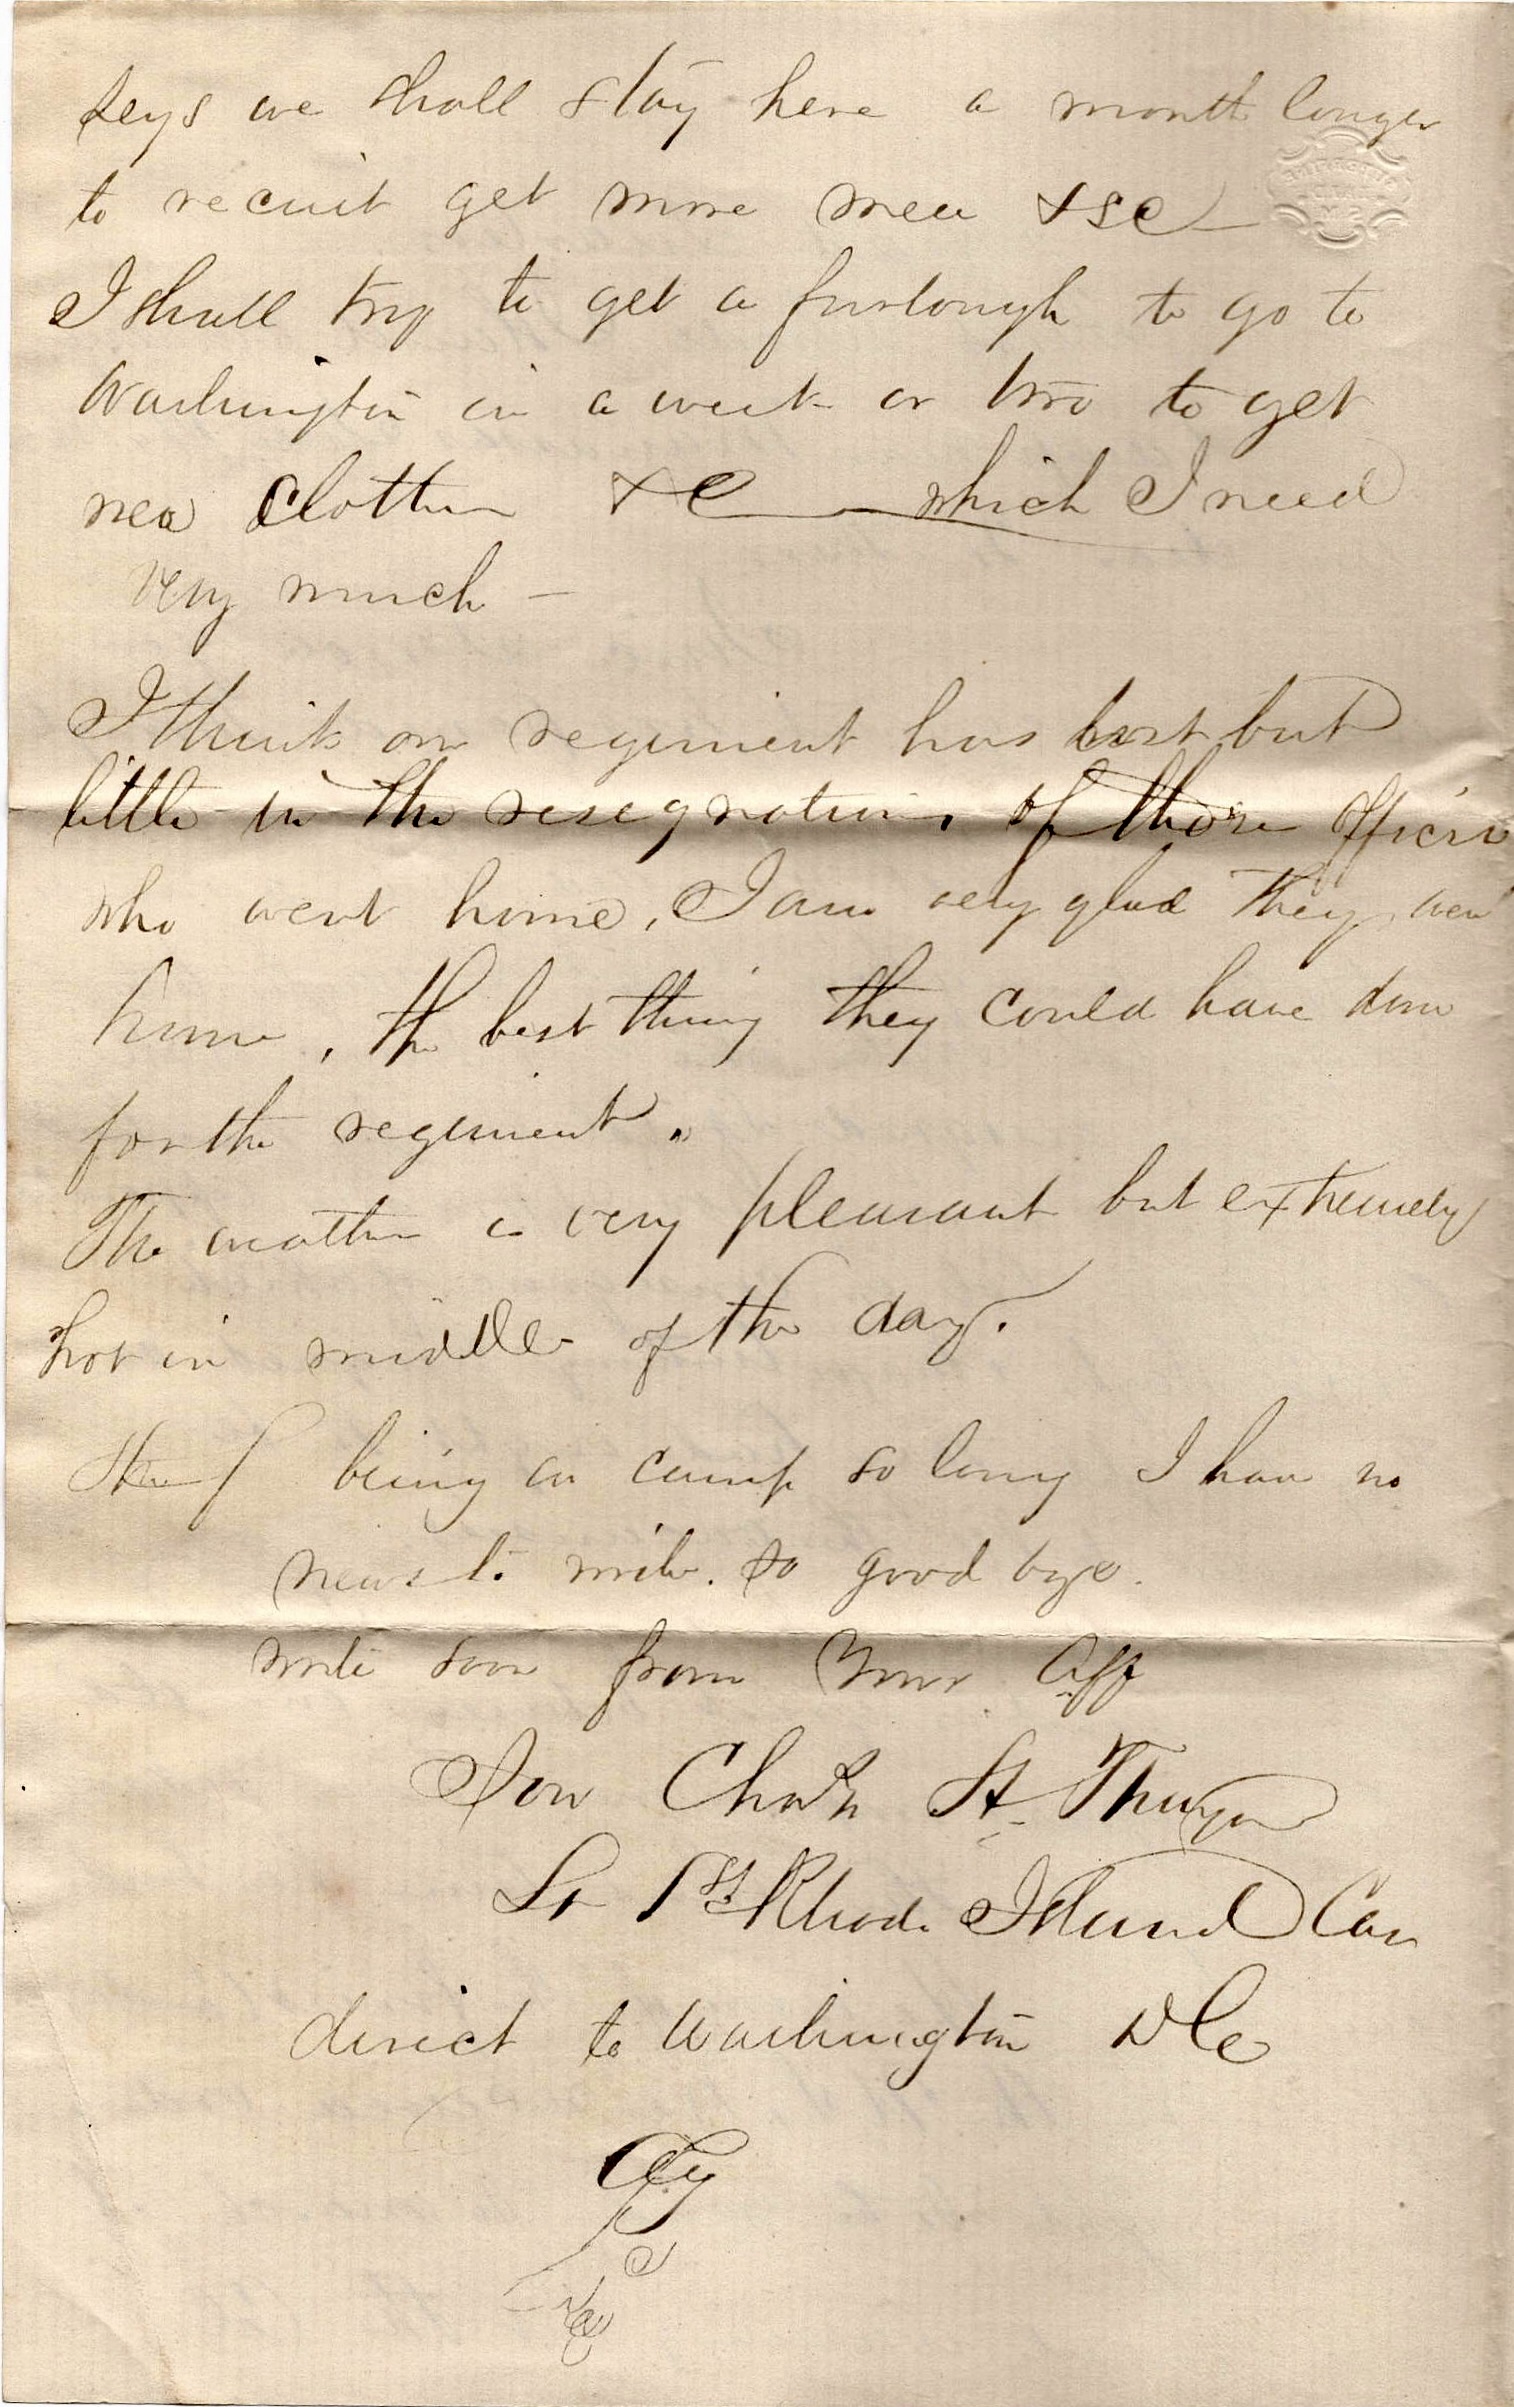 says we shall stay here a month longer
to recuit get more men &sc
I shall try to get a furlough to go to
Washington in a week or two to get
new clothes &c which I need
very much —
I think our regiment has lost but
little in the resegnations of those officers
who went home, I am very glad they went
home, the best thing they could have done
for the regiment.
The weather is very pleasant but extremely
hot in middle of the day.
being in camp so long I have no
news to write. so good bye.
write soon from Your Aff
Son Chas St. Thayer
Lt 1st Rhode Island Cav
direct to Washington DC